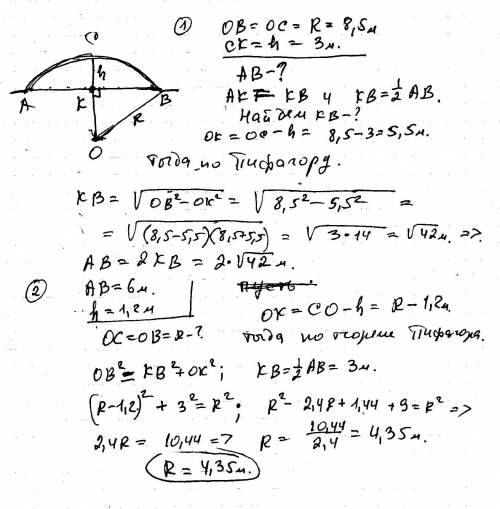 C
h
A
K
B
R
O
① OB = OC = R = 8,5м
CK = h = 3м.
AB - ?
AK = KB и KB = 1/2 AB.
Найдём KB - ?
OK = OC - h = 8,5 - 3 = 5,5м.
Тогда по Пифагору.
KB = √(OB² - OK²) = √(8,5² - 5,5²) =
= √((8,5-5,5)(8,5+5,5)) = √(3·14) = √42 м. =>
AB = 2KB = 2·√42 м.
② AB = 6м.
h = 1,2м
OC = OB = R - ?
пусть
OK = CO - h = R - 1,2м.
тогда по теореме Пифагора.
OB² = KB² + OK²; KB = 1/2 AB = 3м.
(R-1,2)² + 3² = R²; R² - 2,4R + 1,44 + 9 = R² =>
2,4R = 10,44 => R = 10,44/2,4 = 4,35м.
R = 4,35м.